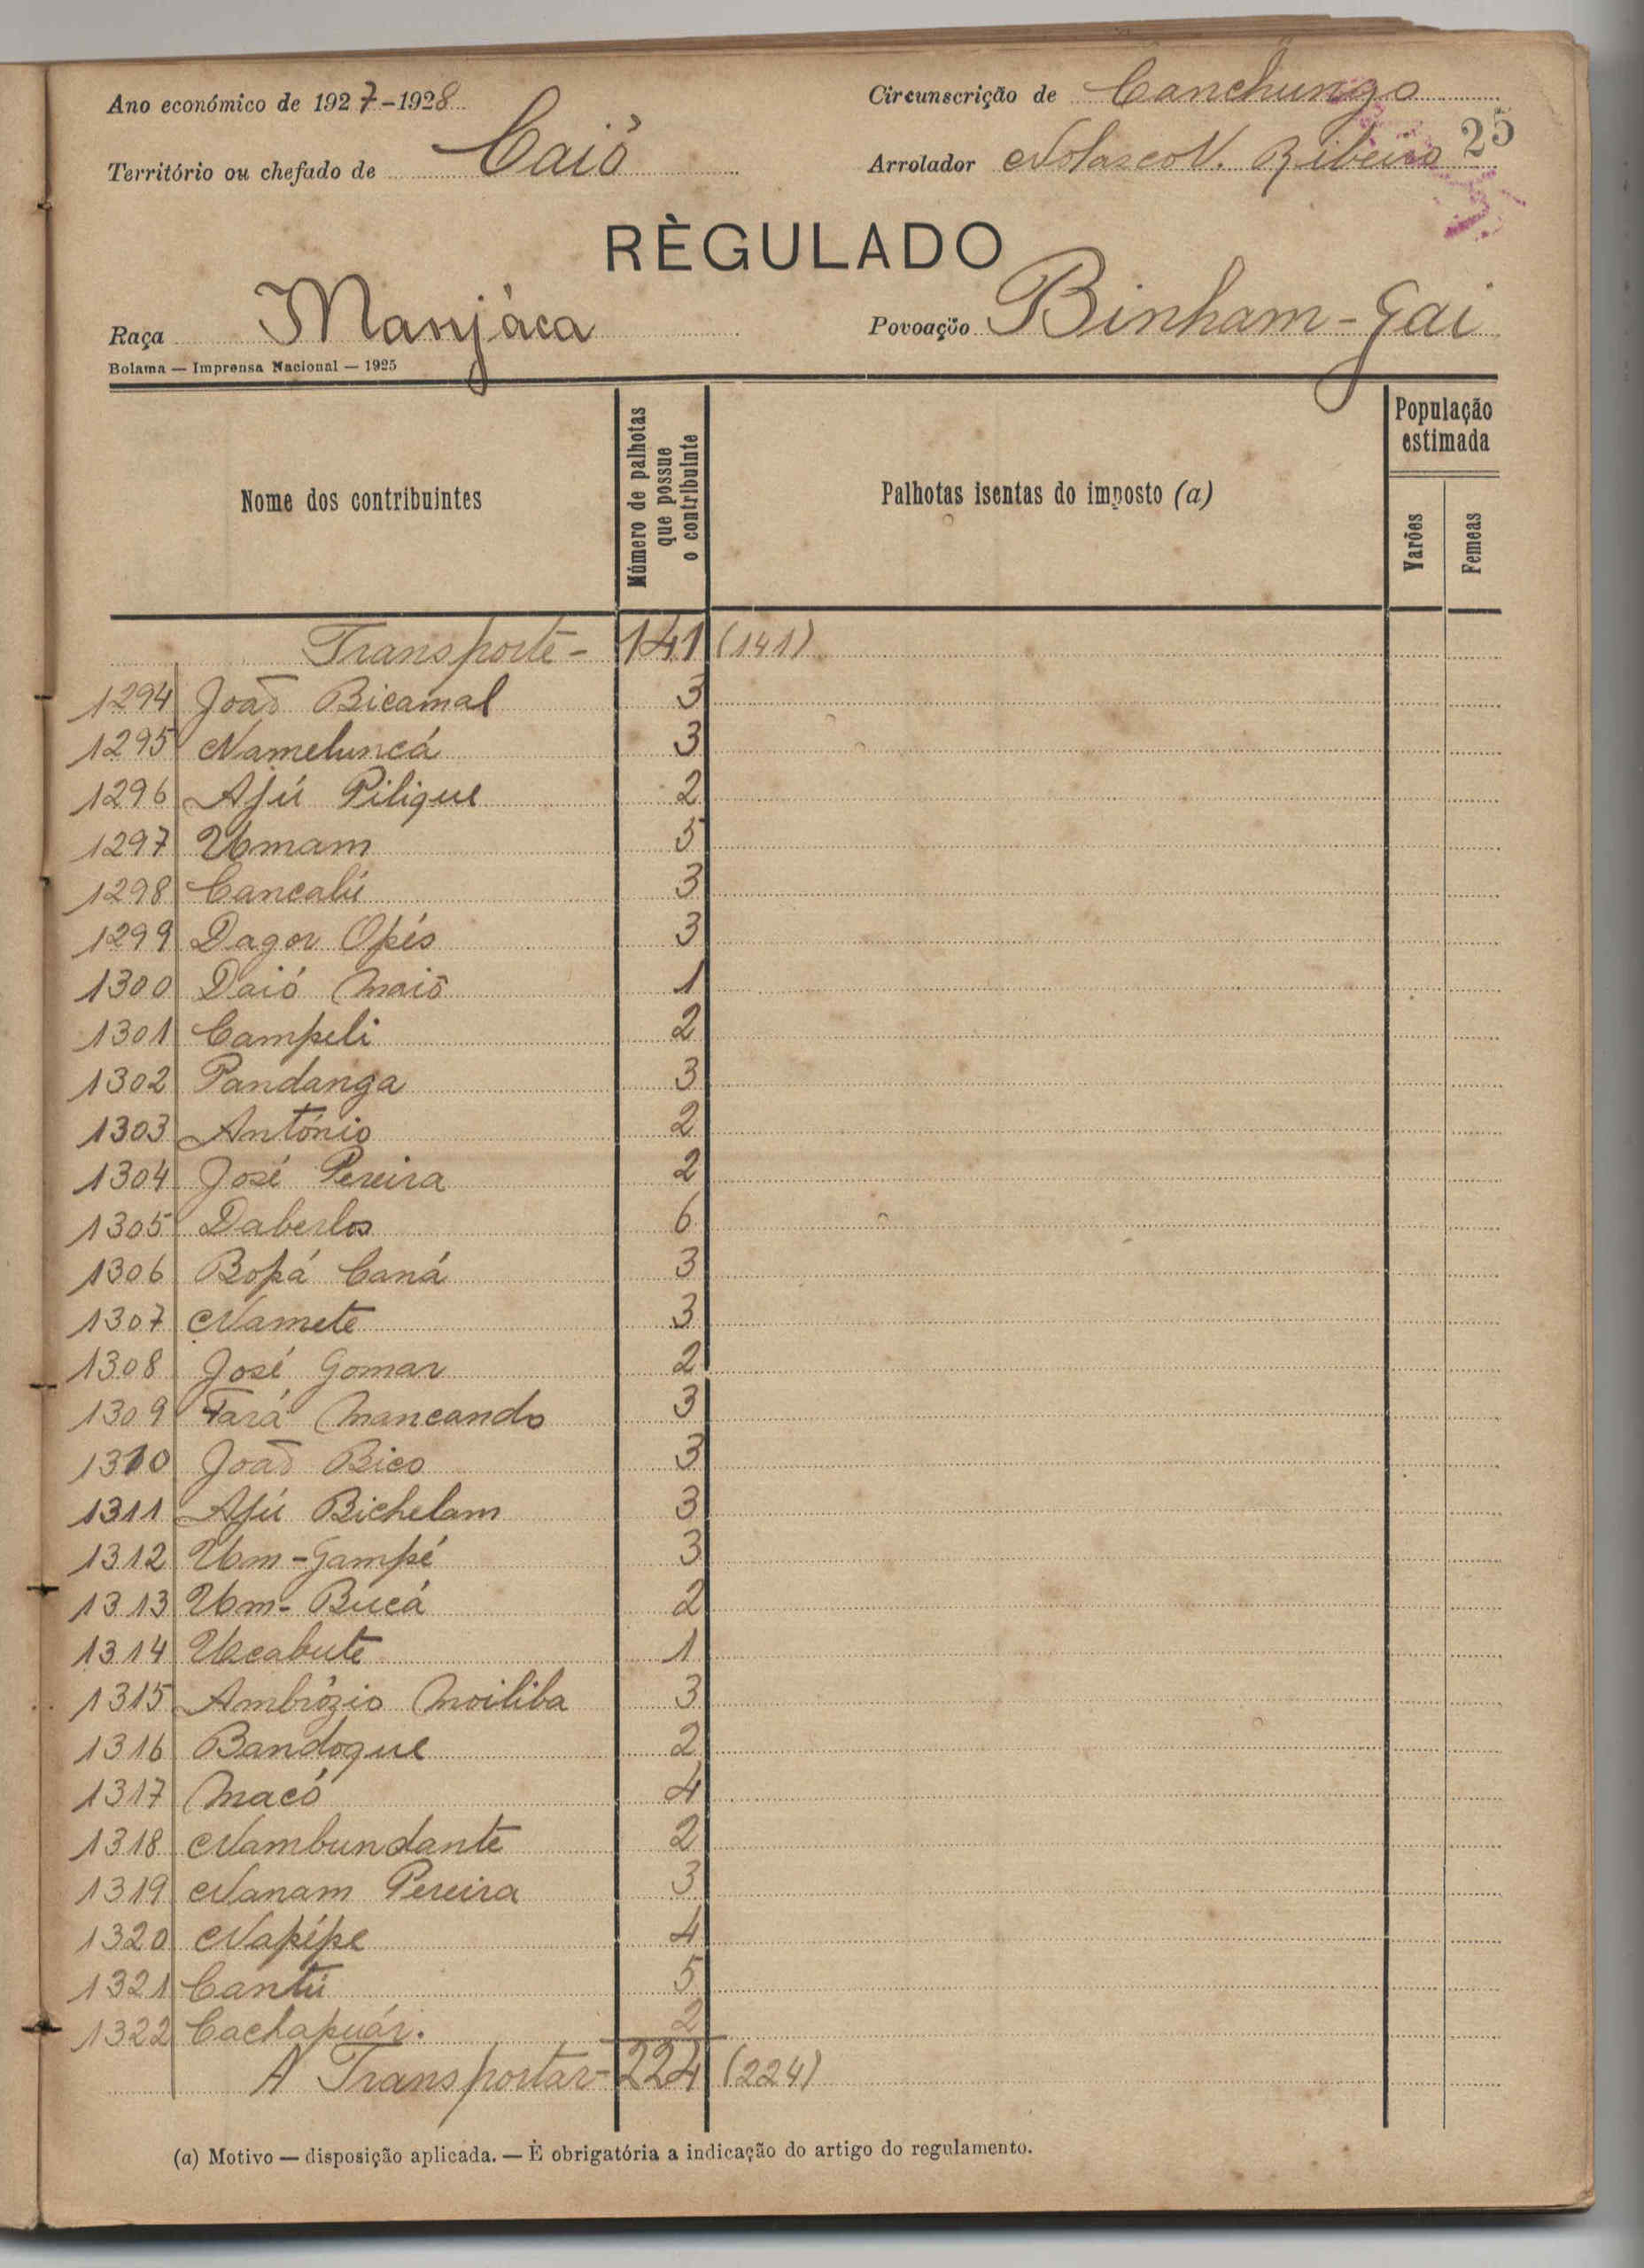 Ano económico de 1927-1928
Circunscrição de Canchungo
25
Território ou chefado de Caió
Arrolador Nolasco N. Ribeiro
RÈGULADO
Raça Manjáca
Povoação Binham-Gai
Bolama — Imprensa Nacional — 1925
Nome dos contribuintes
Número de palhotas que possue o contribuinte
Palhotas isentas do imposto (a)
População estimada
Varões
Femeas
Transporte - 141 (141)
1294 João Bicamal 3
1295 Nameluncá 3
1296 Afú Pilique 2
1297 Umam 5
1298 Cancalú 3
1299 Dagor Opís 3
1300 Daió Maió 1
1301 Campeli 2
1302 Pandanga 3
1303 António 2
1304 José Pereira 2
1305 Daberlos 6
1306 Bopá Caná 3
1307 Namete 3
1308 José Gomar 2
1309 Fará Mancando 3
1310 João Bico 3
1311 Afú Bichelam 3
1312 Um-Gampé 3
1313 Um-Bucá 2
1314 Ucabute 1
1315 Ambrózio Moiliba 3
1316 Bandoque 2
1317 Macó 4
1318 Nambundante 2
1319 Nanam Pereira 3
1320 Napípe 4
1321 Cantú 5
1322 Cachapuár. 2
A Transportar - 224 (224)
(a) Motivo — disposição aplicada. — È obrigatória a indicação do artigo do regulamento.